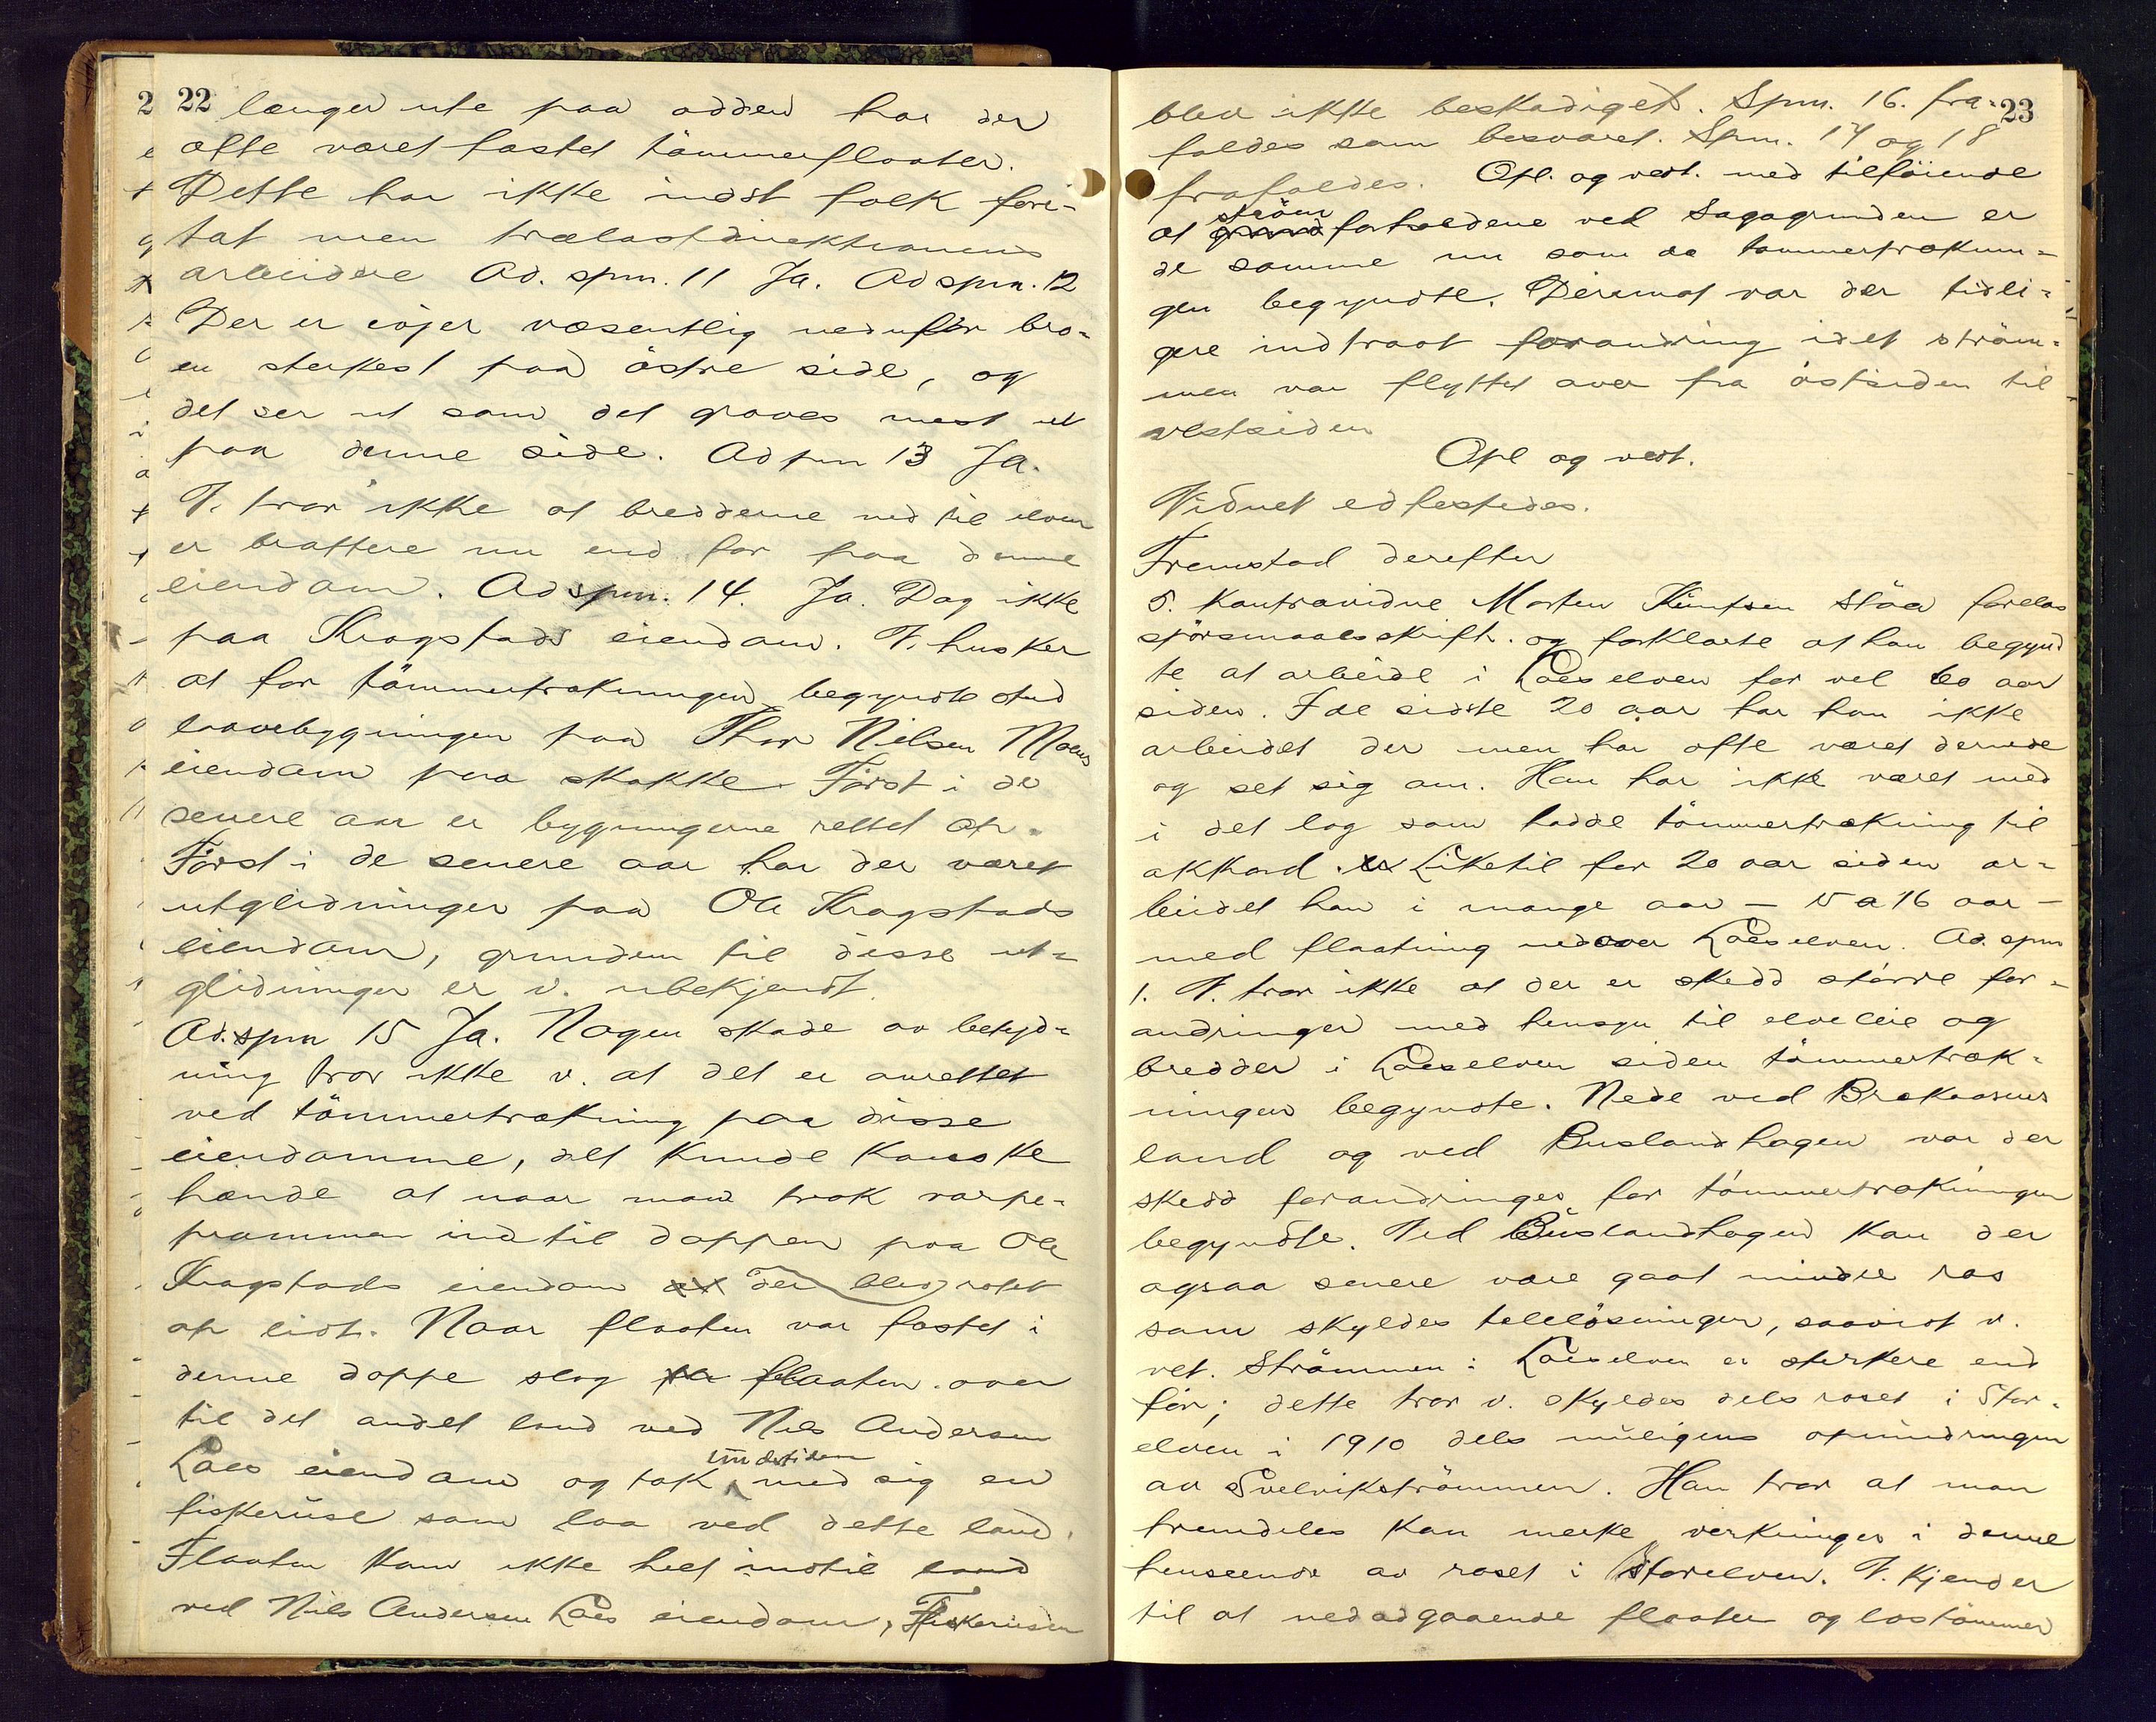 22
længer ute paa odden har der
ofte været fastet tömmerflaater.
Dette har ikke indst folk fore-
tat men trælastdirektionens
arbeidere Ad. spm. 11 Ja. Ad spm. 12
Der er evjer væsentlig nedenför bro-
en sterkest paa östre side, og
det ser ut som det graves mest ut
paa denne side. Ad spm 13 Ja.
V. tror ikke at bredderne ned til elven
er brattere nu end för paa denne
eiendom. Ad spm. 14. Ja. Dog ikke
paa Kragstads eiendom. V. husker
at för tömmertrækningen begyndte stod
laavebygningen paa Thor Nilsen Moens
eiendom paa skakke. Först i de
senere aar er bygningerne rettet op.
Först i de senere aar har der været
utglidninger paa Ole Kragstads
eiendom, grunden til disse ut-
glidninger er v. ubekjendt.
Ad. spm 15 Ja. Nogen skade av betyd-
ning tror ikke v. at det er anrettet
ved tömmertrækning paa disse
eiendomme, det kunde kanske
hænde at naar man trak varpe-
prammen ind til doppen paa Ole
Kragstads eiendom der blev rotet
op lidt. Naar flaaten var fastet i
denne doppe slog flaaten over
til det andet land ved Nils Andersen
Loes eiendom og tok undertiden med sig en
fiskeruse som laa ved dette land.
Flaaten kom ikke helt indtil land
ved Nils Andersen Loes eiendom, Fiskerusen
23
blev ikke beskadiget. Spm. 16. fra-
faldes som besvaret. Spm. 17 og 18
frafaldes. Opl. og vedt. med tilföiende
at ström forholdene ved Sagagrunden er
de samme nu som da tömmertræknin-
gen begyndte. Derimot var der tidli-
gere indtraat forandring idet ström-
men var flyttet over fra östsiden til
vestsiden
Opl og vedt.
Vidnet edfestedes.
Fremstod derefter
5. Kontravidne Morten Knutsen Stöa forelas
spörsmaalsskrift. og forklarte at han begynd
te at arbeide i Loeselven for vel 60 aar
siden. I de sidste 20 aar har han ikke
arbeidet der men har ofte været dernede
og set sig om. Han har ikke været med
i det lag som hadde tömmertrækning til
akkord. Liketil for 20 aar siden ar-
beidet han i mange aar - 15 a 16 aar -
med flaatning nedover Loeselven. Ad. spm
1. V. tror ikke at der er skedd större for-
andringer med hensyn til elveleie og
bredder i Loeselven siden tömmertræk-
ningen begyndte. Nede ved Brekaasens
land og ved Buslandhagen var der
skedd forandringer för tömmertrækningen
begyndte. Ved Buslandhagen kan der
ogsaa senere være gaat mindre ras
som skyldes telelösninger, saavidt v.
vet. Strömmen i Loeselven er sterkere end
för; dette tror v. skyldes dels raset i Stor-
elven i 1910 dels muligens opmudringen
av Svelvikströmmen. Han tror at man
fremdeles kan merke virkninger i denne
henseende av raset i Storelven. V. kjender
til at nedadgaaende flaater og löstömmer